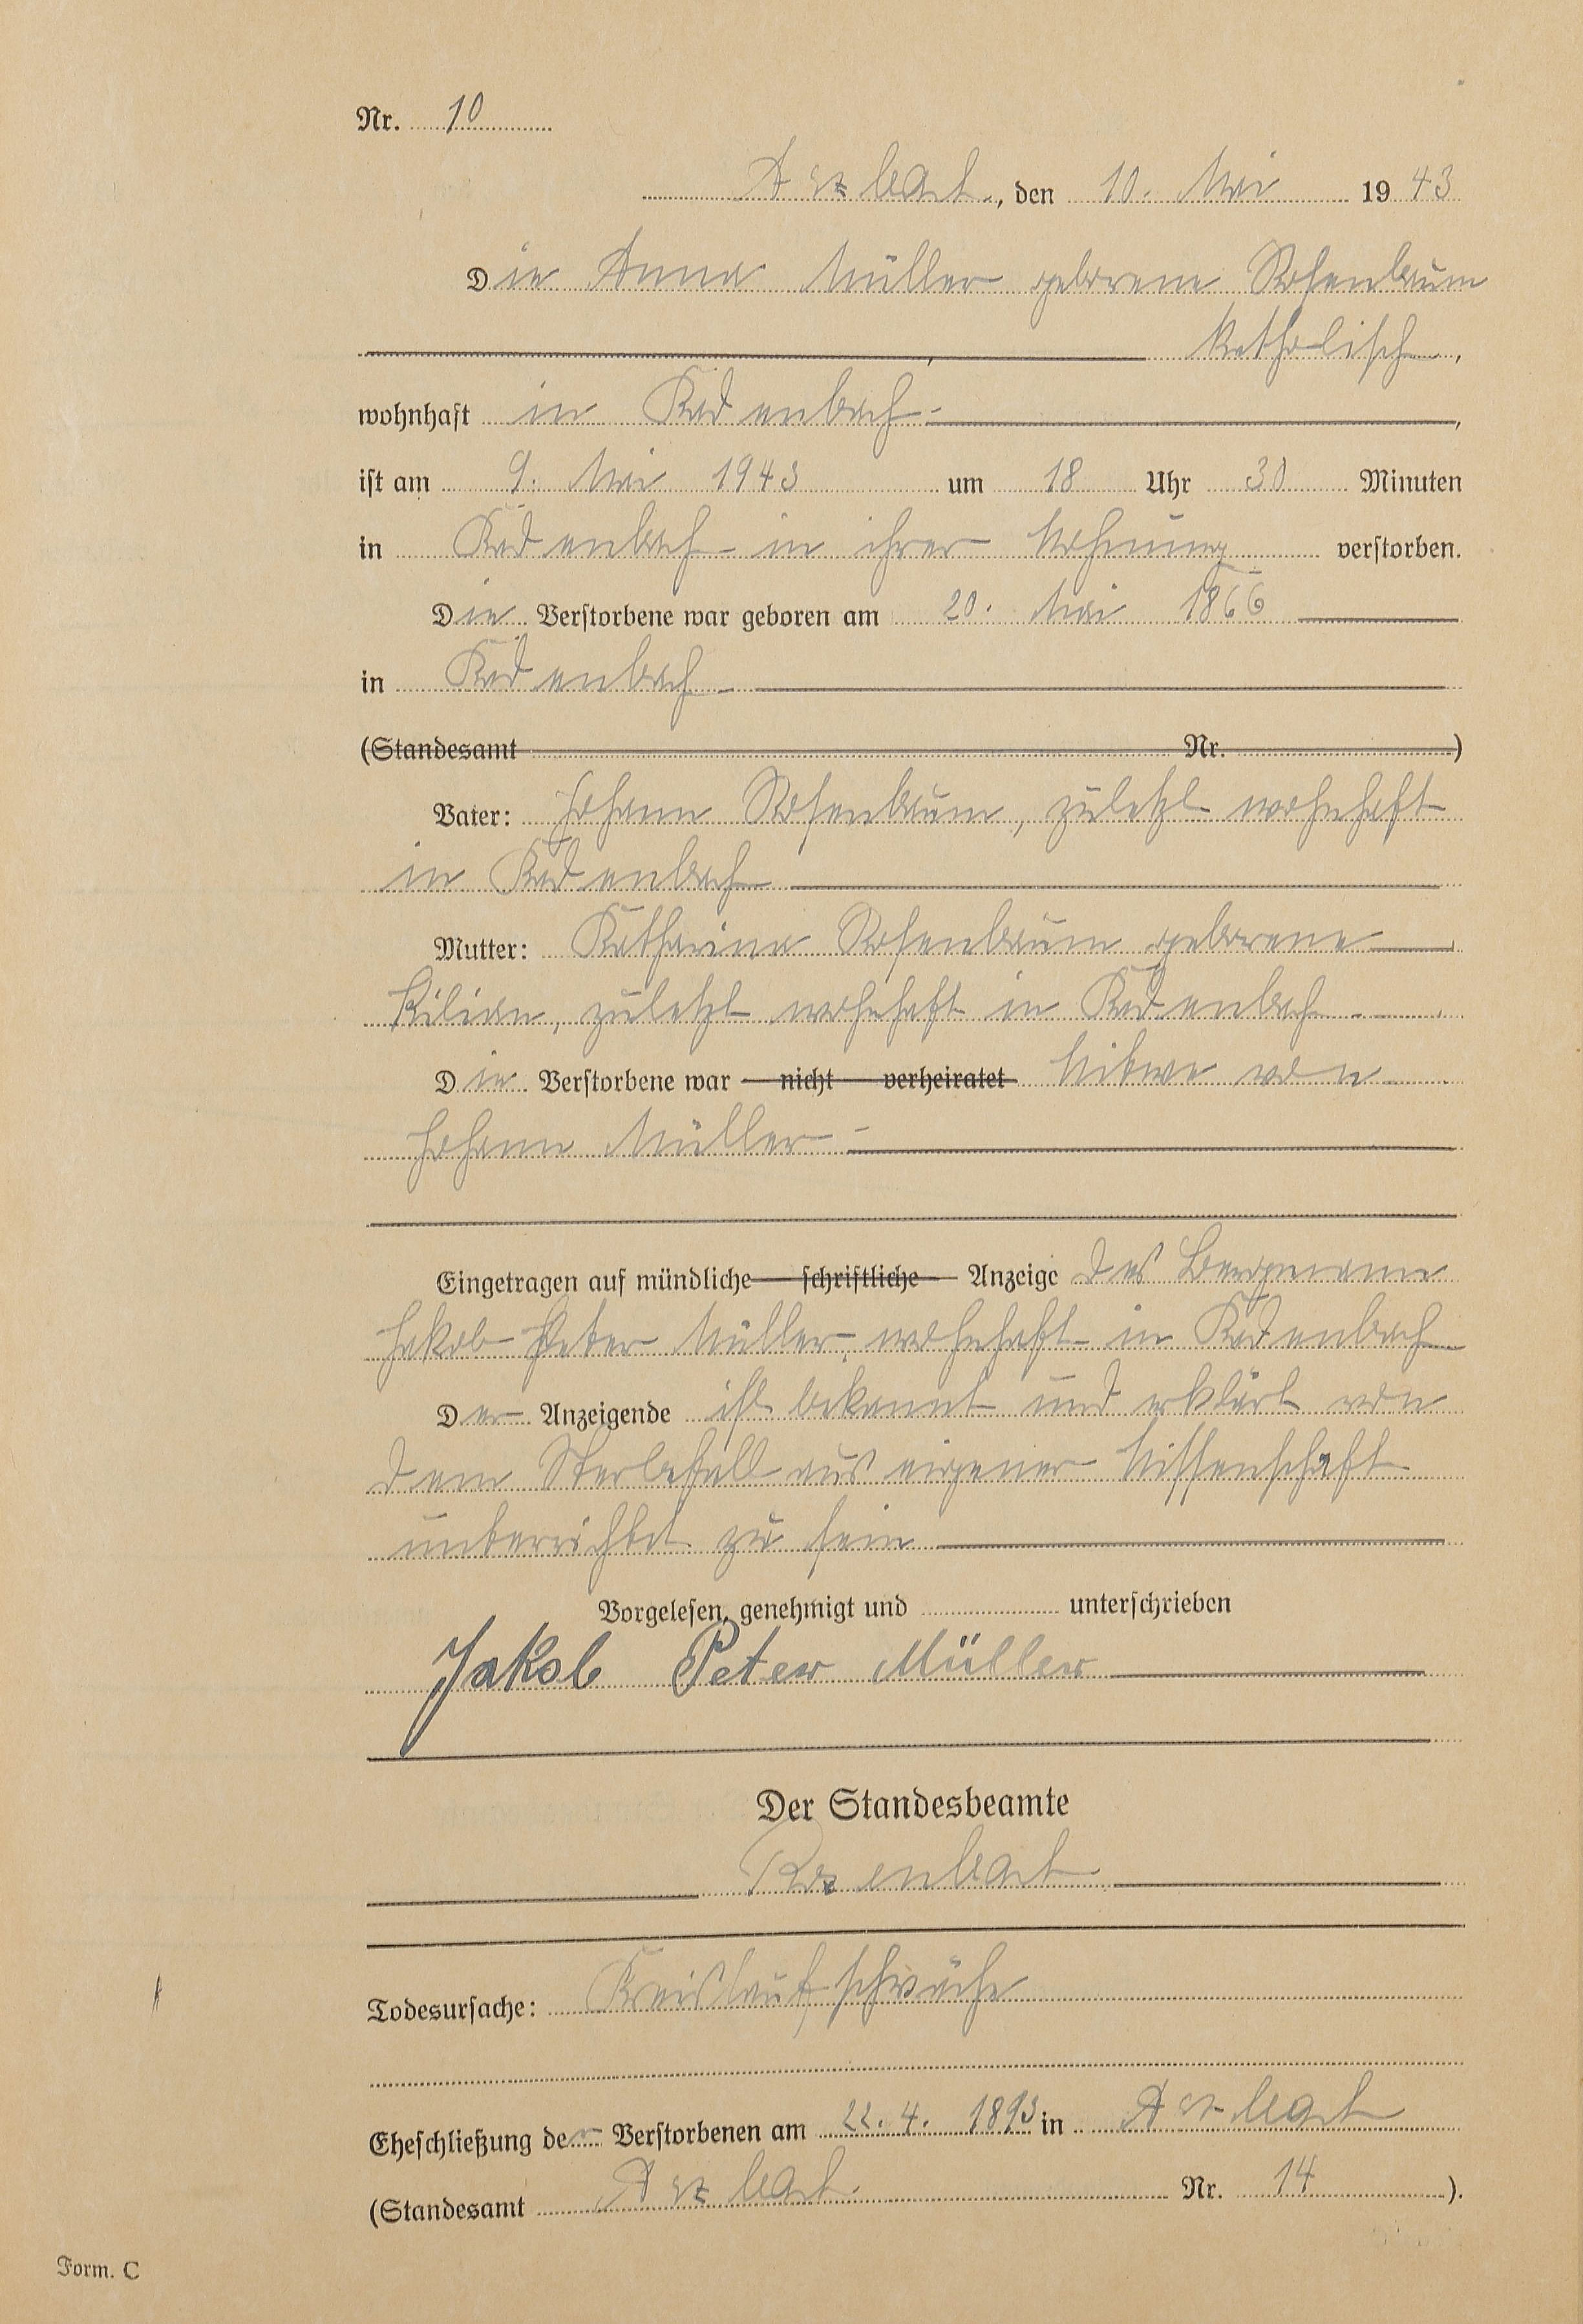 Nr. 10
Arzbach, den 10. Mai 1943
Die Anna Müller geborene Rosenbaum
katholisch,
wohnhaft in Kadenbach
ist am 9. Mai 1943 um 18 Uhr 30 Minuten
in Kadenbach in ihrer Wohnung verstorben.
Die Verstorbene war geboren am 20. Mai 1866
in Kadenbach
(Standesamt Nr. )
Vater: Johann Rosenbaum, zuletzt wohnhaft
in Kadenbach
Mutter: Katharina Rosenbaum geborene
Kilian, zuletzt wohnhaft in Kadenbach
Die Verstorbene war nicht verheiratet Witwe von
Johann Müller
Eingetragen auf mündliche schriftliche Anzeige des Bergmann
Jakob Peter Müller, wohnhaft in Kadenbach
Der Anzeigende ist bekannt und erklärt von
dem Sterbefall aus eigener Wissenschaft
unterrichtet zu sein
Vorgelesen, genehmigt und unterschrieben
Jakob Peter Müller
Der Standesbeamte
Todesursache: Kreislaufschwäche
Eheschließung der Verstorbenen am 22. 4. 1893 in Arzbach
(Standesamt Arzbach Nr. 14 ).
Form. C